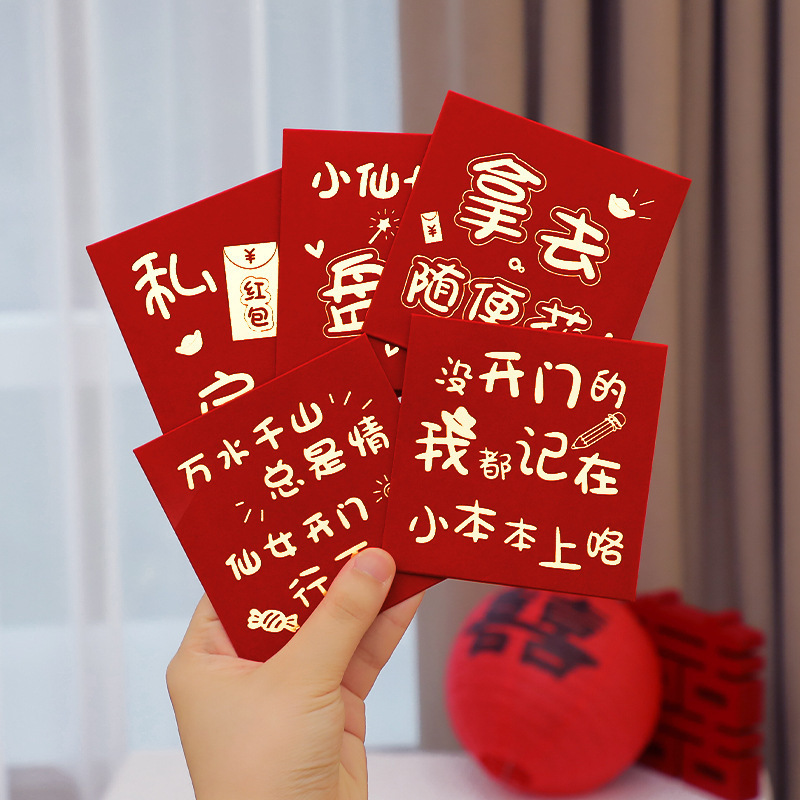 私
¥
红包
小仙
盘
拿去
¥
随便花
万水千山
总是情
仙女开门
行
没开门的
我都记在
小本本上咯
囍
囍